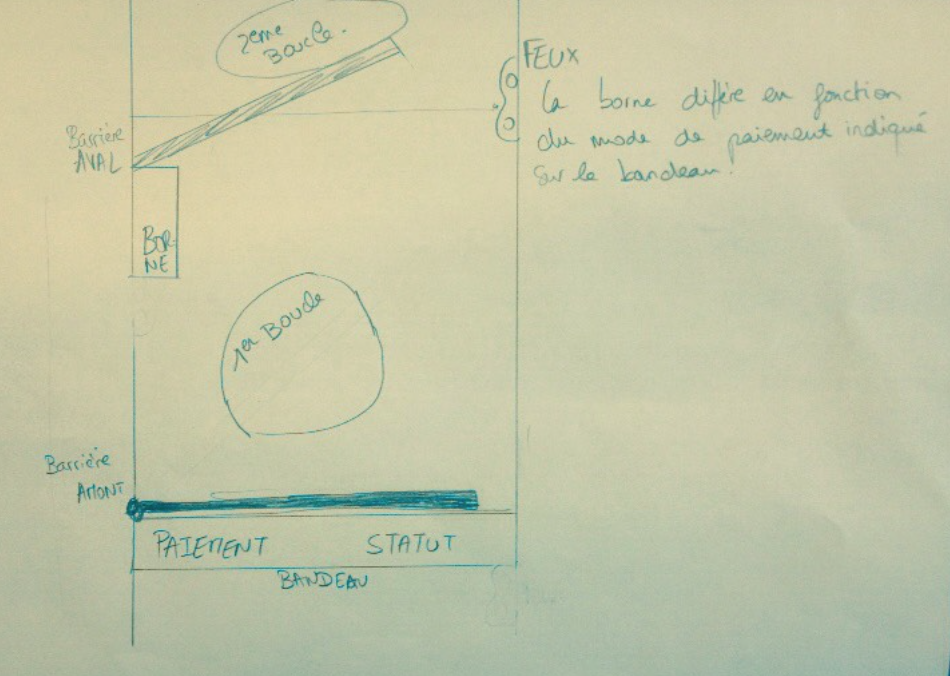 2eme
Boucle.
FEUX
la borne diffère en fonction
du mode de paiement indiqué
sur le bandeau!
Barrière
AVAL
BOR-
NE
1er Boucle
Barrière
AMONT
PAIEMENT STATUT
BANDEAU